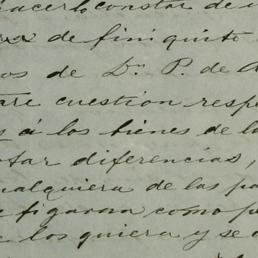 hacerlo constar de
de finiquito
de Dn. P. de
cuestion resp
á los bienes de l
tar diferencias,
ualquiera de las pa
figaran como p
los quiera y se